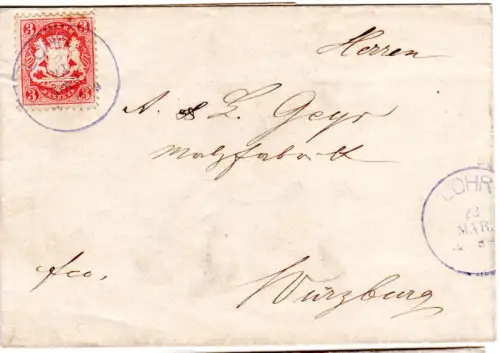 3 3
3 3
Herren
A. & L. Geyr
Malzfabrik
LOHR
22
MÄR.
fco.
Würzburg